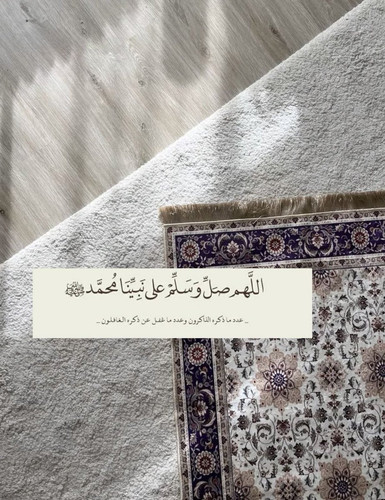 اللَّهم صلِّ وَسَلِّمْ على نَبِيِّنَا مُحمَّد ﷺ
_ عدد ما ذكره الذاكرون وعدد ما غفل عن ذكره الغافلون _